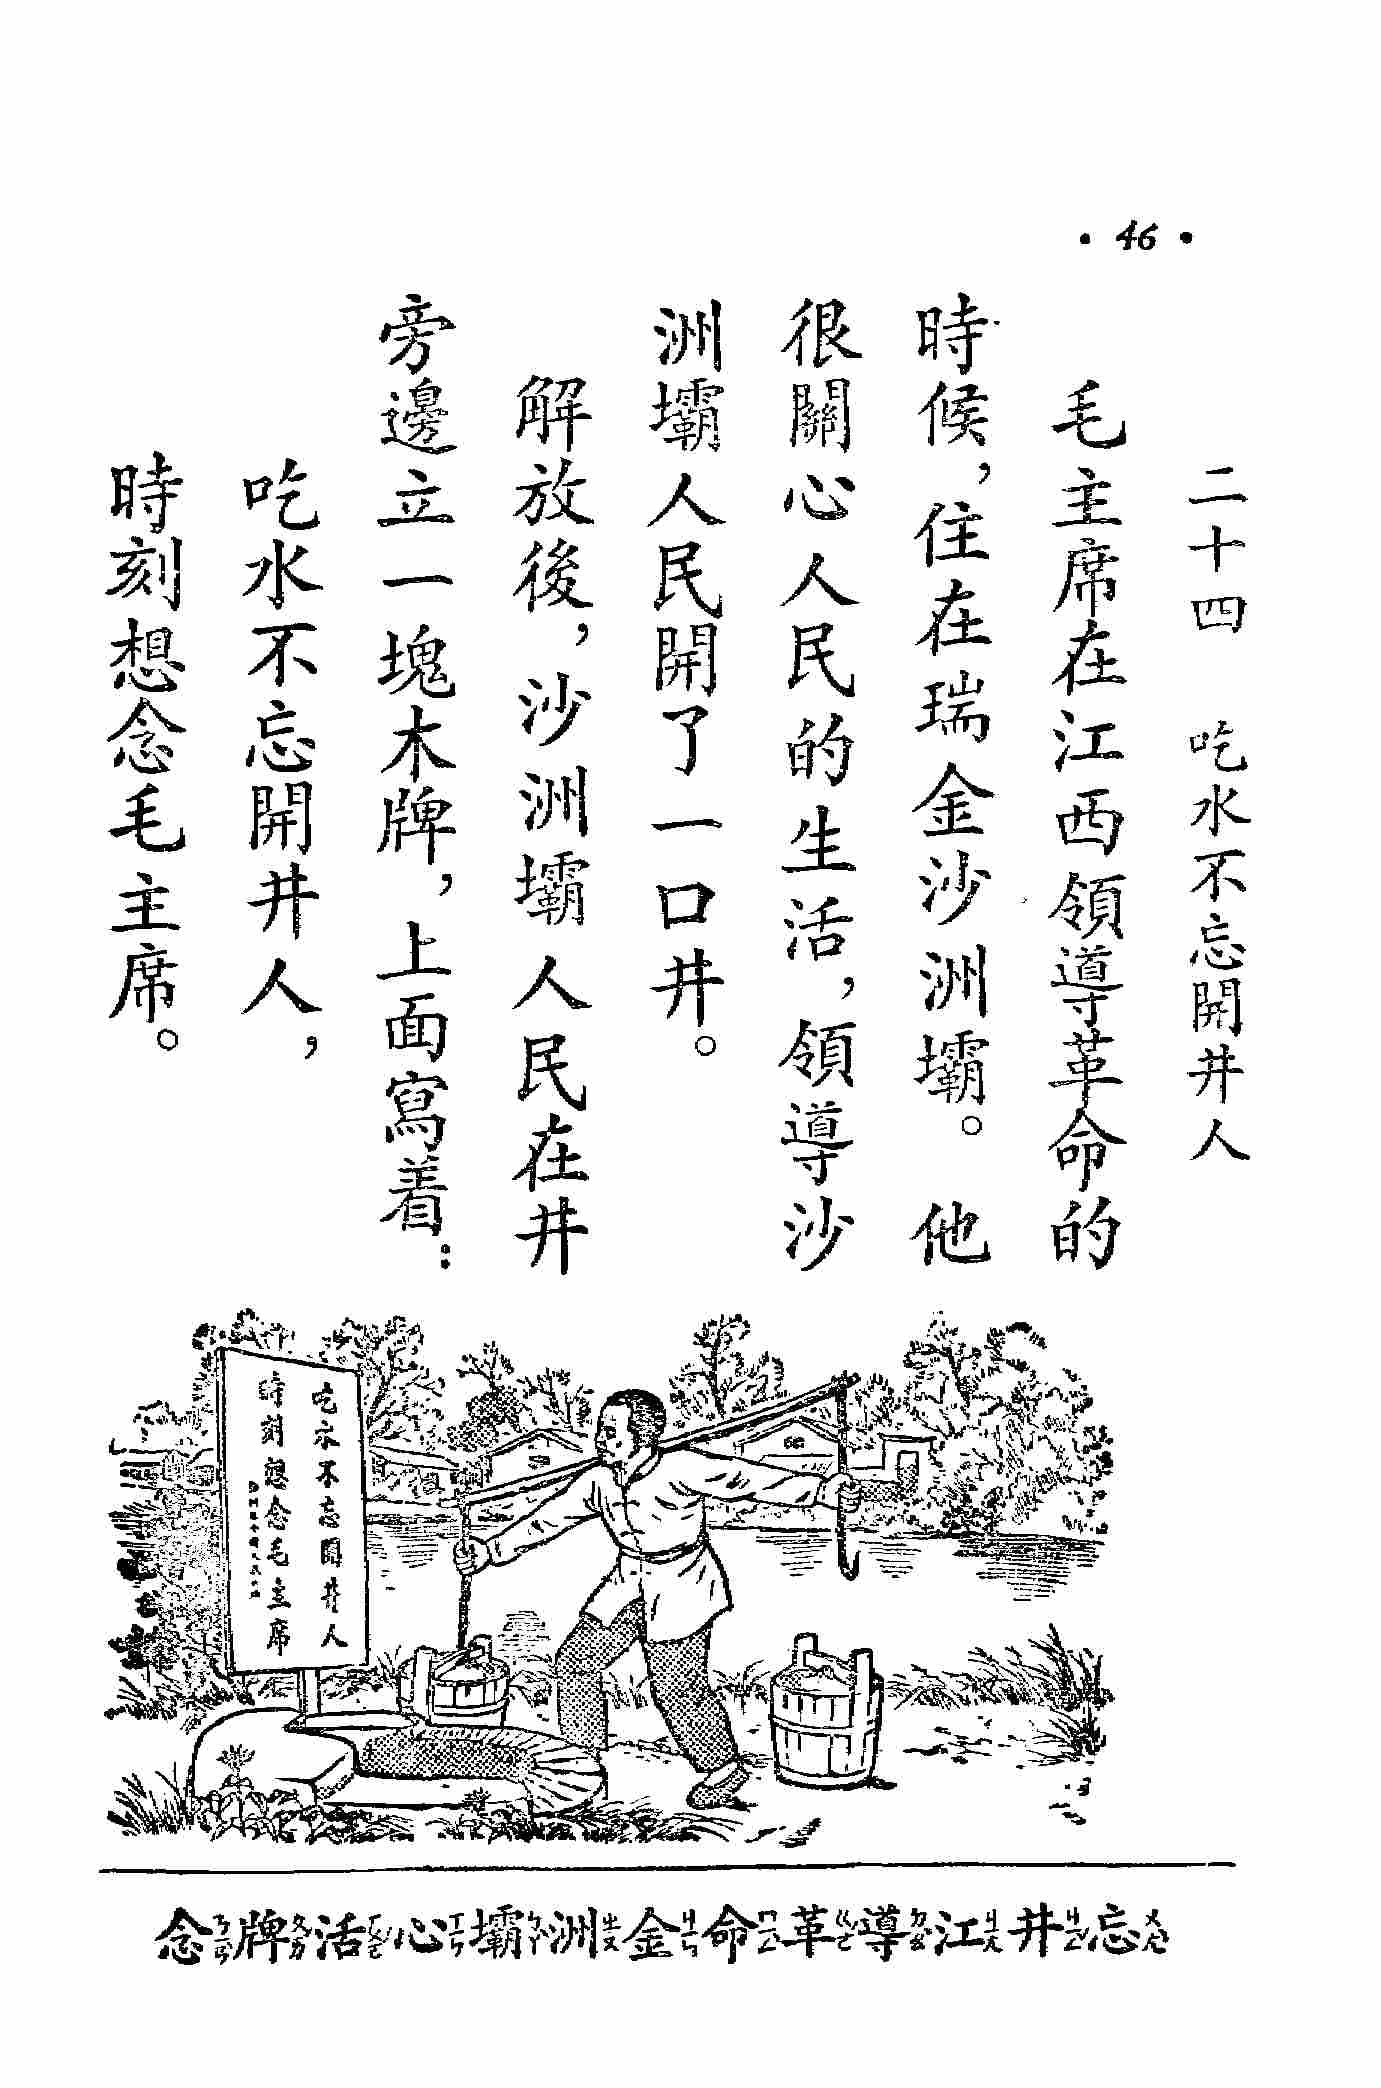 • 46 •
二十四 吃水不忘開井人
毛主席在江西領導革命的
時候，住在瑞金沙洲壩。他
很關心人民的生活，領導沙
洲壩人民開了一口井。
解放後，沙洲壩人民在井
旁邊立一塊木牌，上面寫着：
吃水不忘開井人，
時刻想念毛主席。
吃水不忘開井人
時刻想念毛主席
忘ㄨㄤ井ㄐㄧㄥ江ㄐㄧㄤ導ㄉㄠ革ㄍㄜ命ㄇㄧㄥ金ㄐㄧㄣ洲ㄓㄡ壩ㄅㄚ心ㄒㄧㄣ活ㄏㄨㄛ牌ㄆㄞ念ㄋㄧㄢ